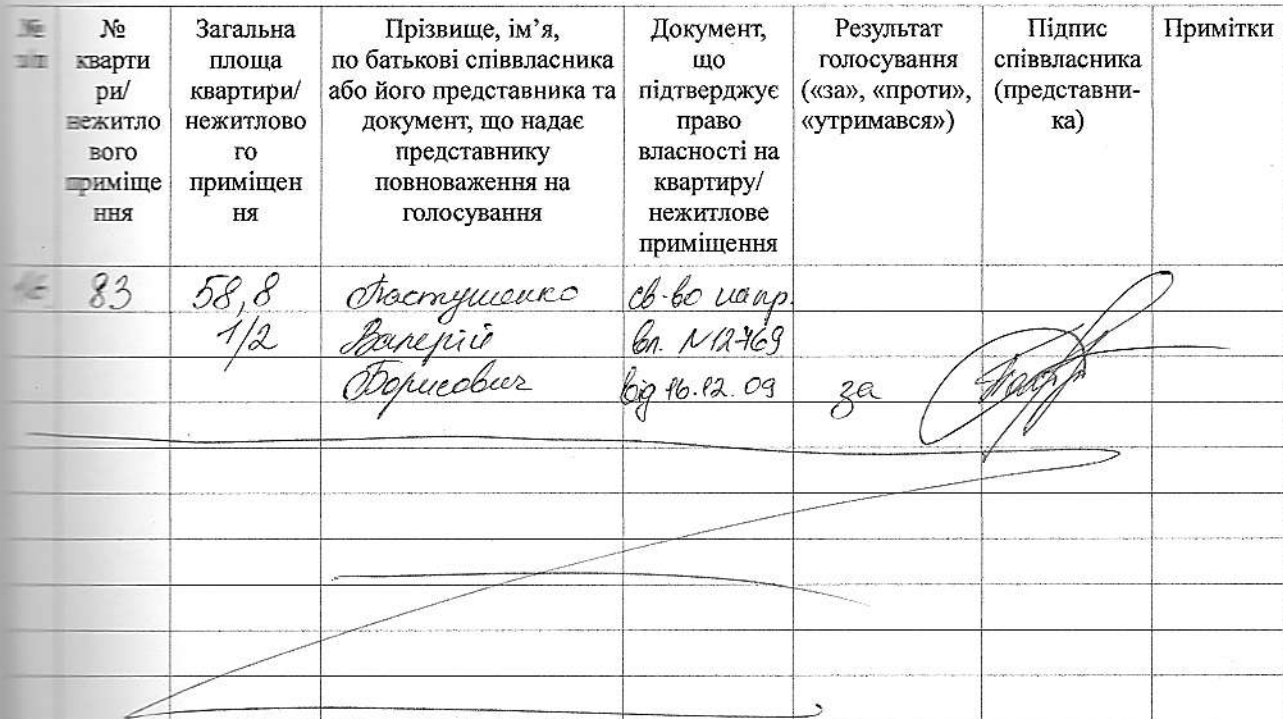 № з/п
№ кварти ри/ нежитло вого приміще ння
Загальна площа квартири/ нежитлово го приміщен ня
Прізвище, ім’я, по батькові співвласника або його представника та документ, що надає представнику повноваження на голосування
Документ, що підтверджує право власності на квартиру/ нежитлове приміщення
Результат голосування («за», «проти», «утримався»)
Підпис співвласника (представни- ка)
Примітки
83 58,8 Пастушенко св-во на пр.
1/2 Валерій вл. N12769
Борисович від 16.12.09 за